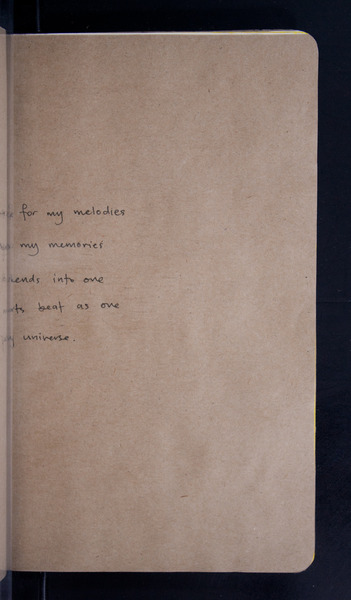 for my melodies
my memories
into one
beat as one
universe.